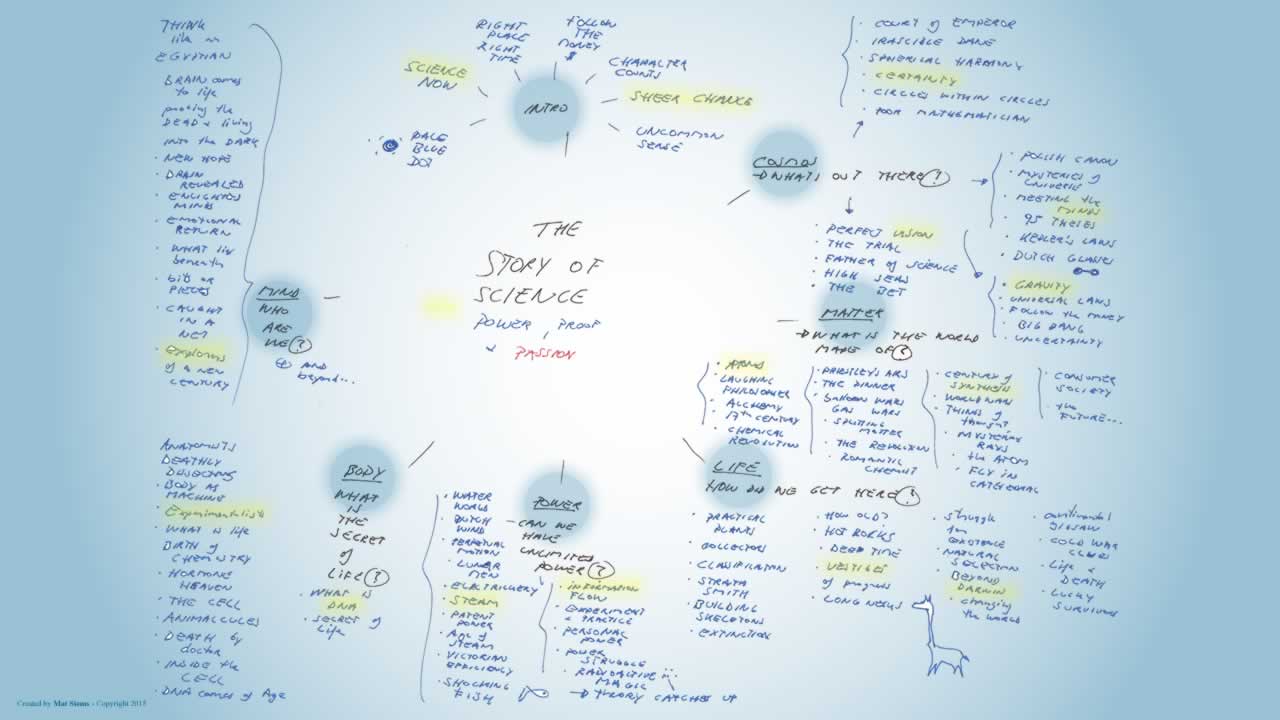 THE
STORY OF
SCIENCE
POWER, PROOF
& PASSION
INTRO
PALE
BLUE
DOT
SCIENCE
NOW
RIGHT
PLACE
RIGHT
TIME
FOLLOW
THE
MONEY
$
CHARACTER
COUNTS
SHEER CHANCE
UNCOMMON
SENSE
COSMOS
OUT THERE?
COURT of EMPEROR
IRASCIBLE DANE
SPHERICAL HARMONY
CERTAINTY
CIRCLES WITHIN CIRCLES
POOR MATHEMATICIAN
POLISH CANON
MYSTERIES of
UNIVERSE
MEETING the
MINDS
95 THESES
KEPLER'S LAWS
DUTCH GLASSES
PERFECT VISION
THE TRIAL
FATHER of SCIENCE
HIGH SEAS
THE BET
GRAVITY
UNIVERSAL LAWS
FOLLOW the MONEY
BIG BANG
UNCERTAINTY
MATTER
WHAT IS THE WORLD
MADE OF?
ATOMS
LAUGHING
PHILOSOPHER
ALCHEMY
17th CENTURY
CHEMICAL
REVOLUTION
PRIESTLEY'S AIRS
THE DINNER
BALLOON WARS
GAS WARS
SPLITTING
MATTER
THE REVOLUTION
ROMANTIC
CHEMIST
CENTURY of
SYNTHESIS
WORLD WAR
THINGS of
thought
MYSTERY
RAYS
the ATOM
FLY IN
CATHEDRAL
CONSUMER
SOCIETY
the
FUTURE...
LIFE
HOW DID WE GET HERE?
PRACTICAL
PLANTS
COLLECTORS
CLASSIFICATION
STRATA
SMITH
BUILDING
SKELETONS
EXTINCTION
HOW OLD?
HOT ROCKS
DEEP TIME
VESTIGES
of progress
LONG NECKS
struggle
for
EXISTENCE
NATURAL
SELECTION
BEYOND
DARWIN
changing
the WORLD
continental
JIGSAW
COLD WAR
CLUES
Life &
DEATH
LUCKY
SURVIVORS
POWER
CAN WE
HAVE
UNLIMITED
POWER?
WATER
WORLD
DUTCH
WIND
PERPETUAL
MOTION
LUNAR
MEN
STEAM
PATENT
POWER
AGE of
STEAM
VICTORIAN
EFFICIENCY
SHOCKING
FISH
INFORMATION
FLOW
EXPERIMENT
& PRACTICE
PERSONAL
POWER
POWER
STRUGGLE
RADIOACTIVE
MAGIC
THEORY CATCHES UP
BODY
WHAT
IS
THE
SECRET
of
LIFE?
WHAT IS
DNA
SECRET of
Life
ANATOMISTS
DEATHLY
DISSECTIONS
BODY AS
MACHINE
Experimentalists
WHAT is life
BIRTH of
CHEMISTRY
HORMONE
HEAVEN
THE CELL
ANIMALCULES
DEATH by
doctor
INSIDE the
CELL
DNA comes of Age
MIND
WHO
ARE
WE?
AND
beyond...
THINK
like an
EGYPTIAN
BRAIN comes
to life
DEAD & living
INTO the DARK
NEW HOPE
BRAIN
REVEALED
ENLIGHTENED
MINDS
EMOTIONAL
RETURN
WHAT lies
beneath
bits or
PIECES
CAUGHT
IN A
NET
Explorers
of a new
CENTURY
Created by Mat Siems - Copyright 2015